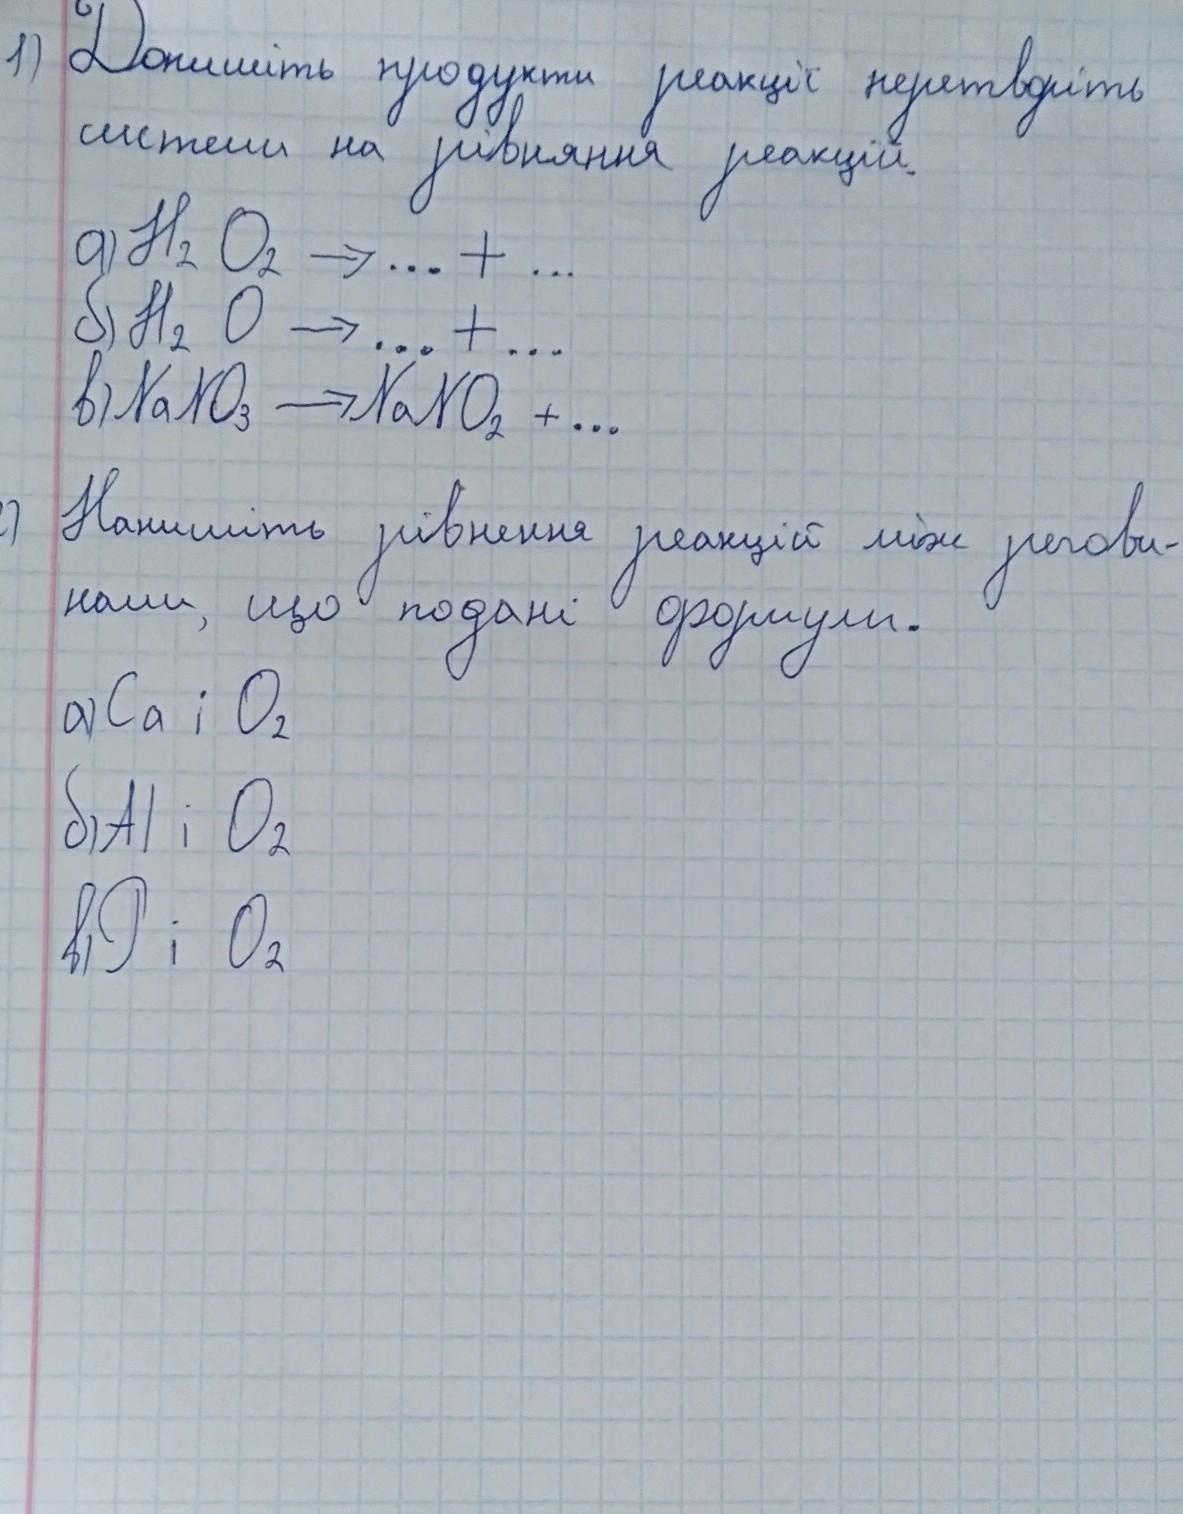 1) Допишіть продукти реакції перетворіть
системи на рівняння реакцій.
а) H₂O₂ → ... + ...
б) H₂O → ... + ...
в) NaNO₃ → NaNO₂ + ...
2) Напишіть рівнення реакцій між речови-
нами, що подані формули.
а) Ca і O₂
б) Al і O₂
в) P і O₂